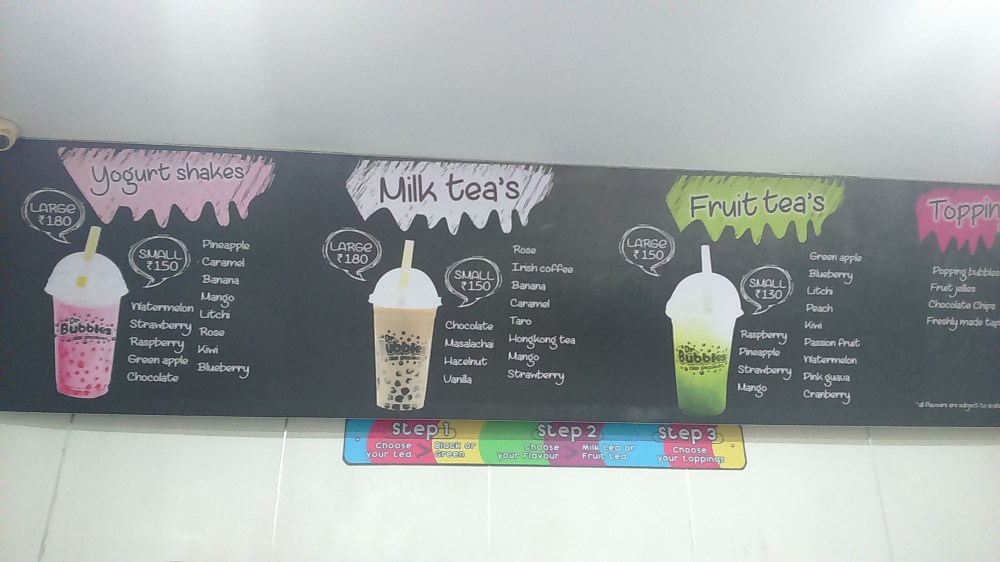 Yogurt shakes
LARGE
₹180
SMALL
₹150
Watermelon
Strawberry
Raspberry
Green apple
Chocolate
Pineapple
Caramel
Banana
Mango
Litchi
Rose
Kiwi
Blueberry
Dr.
Bubbles
Milk tea's
LARGE
₹180
SMALL
₹150
Chocolate
Masalachai
Hazelnut
Vanilla
Rose
Irish coffee
Banana
Caramel
Taro
Hongkong tea
Mango
Strawberry
Dr.
Bubbles
Fruit tea's
LARGE
₹150
SMALL
₹130
Raspberry
Pineapple
Strawberry
Mango
Green apple
Blueberry
Litchi
Peach
Kiwi
Passion fruit
Watermelon
Pink guava
Cranberry
Dr.
Bubbles
Toppin
Popping bubbles
Fruit jellies
Chocolate Chips
Freshly made tap
*all flavours are subject to
Step 1
Choose your tea > Black or Green
Step 2
Choose your flavour > Milk tea or Fruit tea
Step 3
Choose your toppings